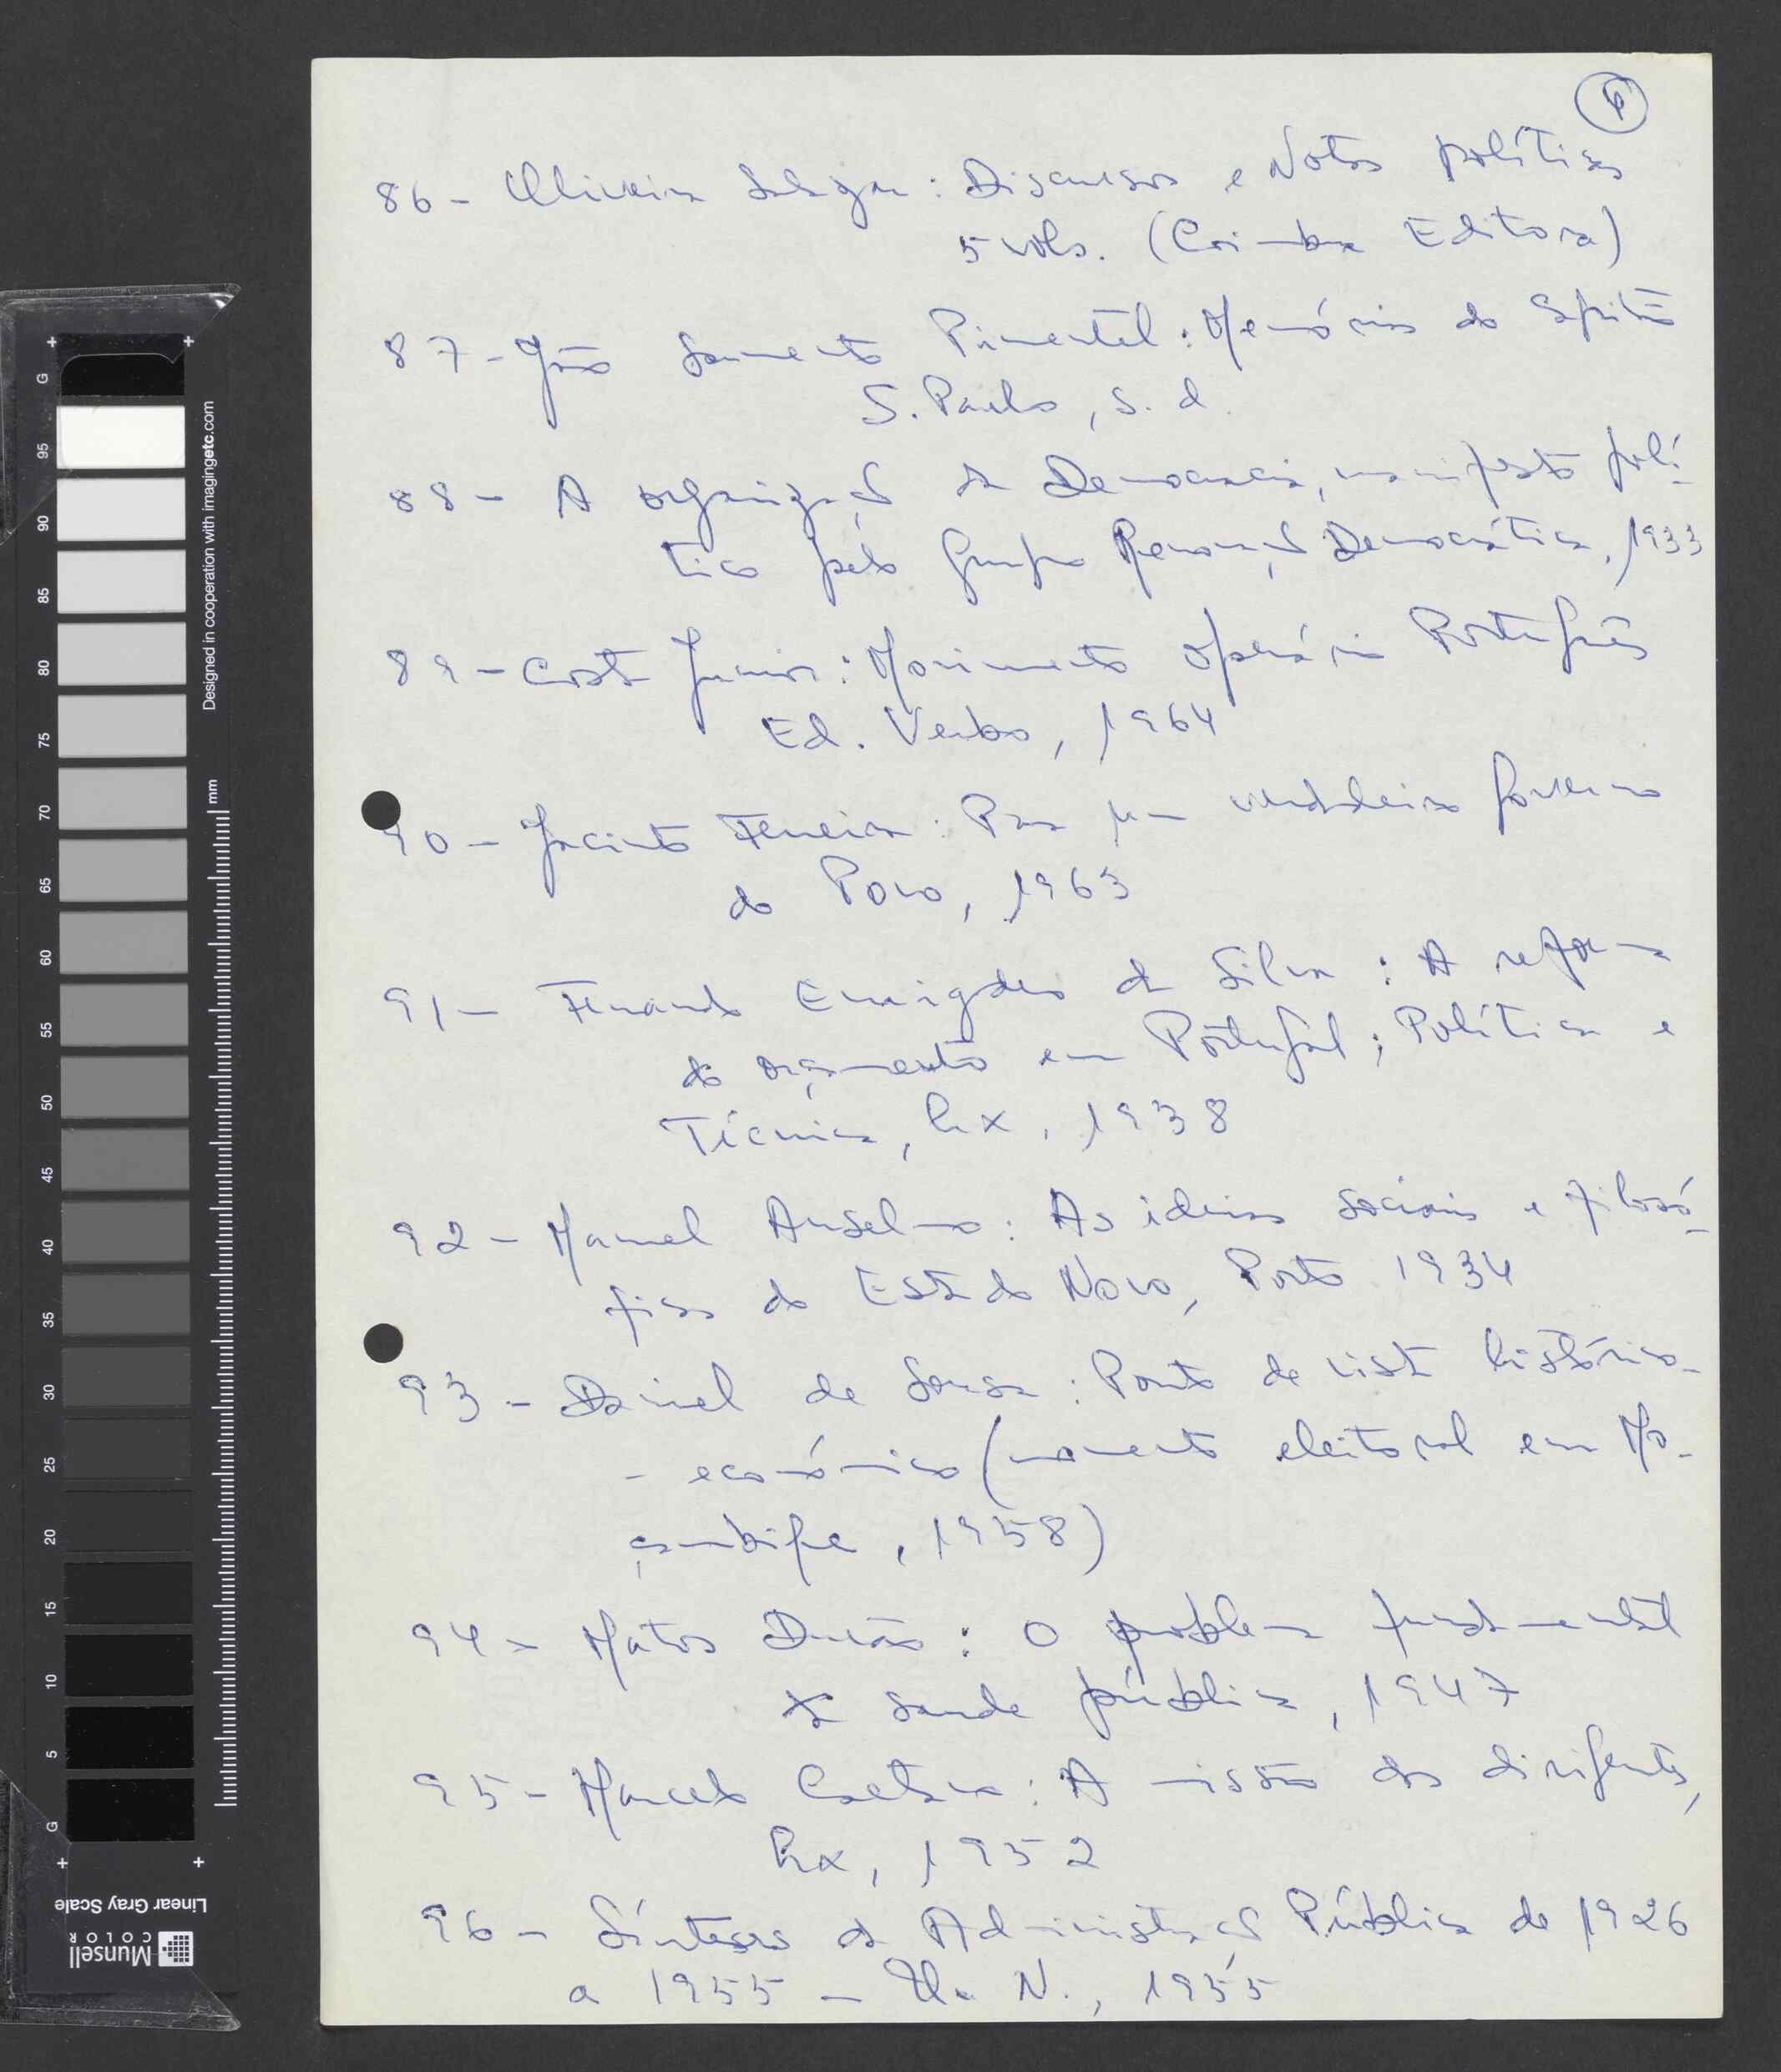 6
86 - Oliveira Salazar : Discursos e Notas políticas
5 vols. (Coimbra Editora)
87 - João Sarmento Pimentel : Memórias do Capitão
S. Paulo, s. d.
88 - A organização da Democracia, manifesto polí-
tico pelo Grupo Renovação Democrática, 1933
89 - Costa Junior : Movimento Operário Português
Ed. Verbo, 1964
90 - Jacinto Ferreira : Para um verdadeiro governo
do Povo, 1963
91 - Fernando Emigdio da Silva : A reforma
do orçamento em Portugal ; Política e
Técnica, Lx, 1938
92 - Manuel Anselmo : As ideias sociais e filosó-
ficas do Estado Novo, Porto 1934
93 - Daniel de Sousa : Ponto de vista histórico-
- económico (momento eleitoral em Mo-
çambique, 1958)
94 - Matos Durão : O problema fundamental
da saude pública, 1947
95 - Marcelo Caetano : A missão dos dirigentes,
Lx, 1952
96 - Sínteses da Administração Pública de 1926
a 1955 - U. N., 1955
Designed in cooperation with imagingetc.com
mm
G
95
90
85
80
75
70
65
60
55
50
45
40
35
30
25
20
15
10
5
G
Linear Gray Scale
Munsell
COLOR